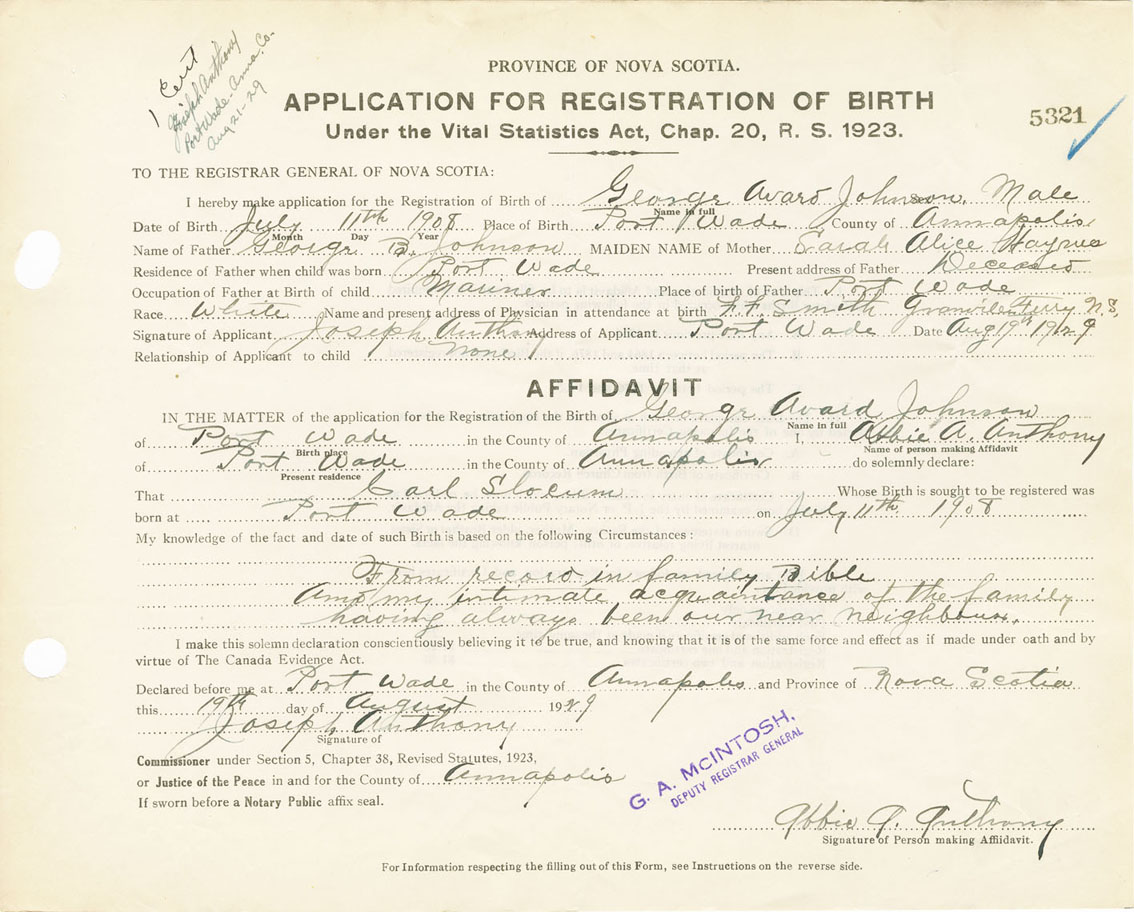 1 Cert
Joseph Anthony
Port Wade - Anna. Co.
Aug 21-29
PROVINCE OF NOVA SCOTIA.
APPLICATION FOR REGISTRATION OF BIRTH
Under the Vital Statistics Act, Chap. 20, R. S. 1923.
5321
TO THE REGISTRAR GENERAL OF NOVA SCOTIA:
I hereby make application for the Registration of Birth of George Avard Johnson, Male
Name in full
Date of Birth July 11th 1908 Place of Birth Port Wade County of Annapolis
Month Day Year
Name of Father George B. Johnson MAIDEN NAME of Mother Sarah Alice Haynes
Residence of Father when child was born Port Wade Present address of Father Deceased
Occupation of Father at Birth of child Mariner Place of birth of Father Port Wade
Race White Name and present address of Physician in attendance at birth F. F. Smith Granville Ferry N.S.
Signature of Applicant Joseph Anthony Address of Applicant Port Wade Date Aug 19th 1929
Relationship of Applicant to child None
AFFIDAVIT
IN THE MATTER of the application for the Registration of the Birth of George Avard Johnson
Name in full
of Port Wade in the County of Annapolis I, Abbie A. Anthony
Birth place Name of person making Affidavit
of Port Wade in the County of Annapolis do solemnly declare:
Present residence
That Carl Slocum Whose Birth is sought to be registered was
born at Port Wade on July 11th 1908
My knowledge of the fact and date of such Birth is based on the following Circumstances:
From record in family Bible
And my intimate acquaintance of the family
having always been our near neighbours.
I make this solemn declaration conscientiously believing it to be true, and knowing that it is of the same force and effect as if made under oath and by
virtue of The Canada Evidence Act.
Declared before me at Port Wade in the County of Annapolis and Province of Nova Scotia
this 19th day of August 1929
Joseph Anthony
Signature of
Commissioner under Section 5, Chapter 38, Revised Statutes, 1923,
or Justice of the Peace in and for the County of Annapolis
If sworn before a Notary Public affix seal.
G. A. MCINTOSH,
DEPUTY REGISTRAR GENERAL
Abbie A. Anthony
Signature of Person making Affiidavit.
For Information respecting the filling out of this Form, see Instructions on the reverse side.